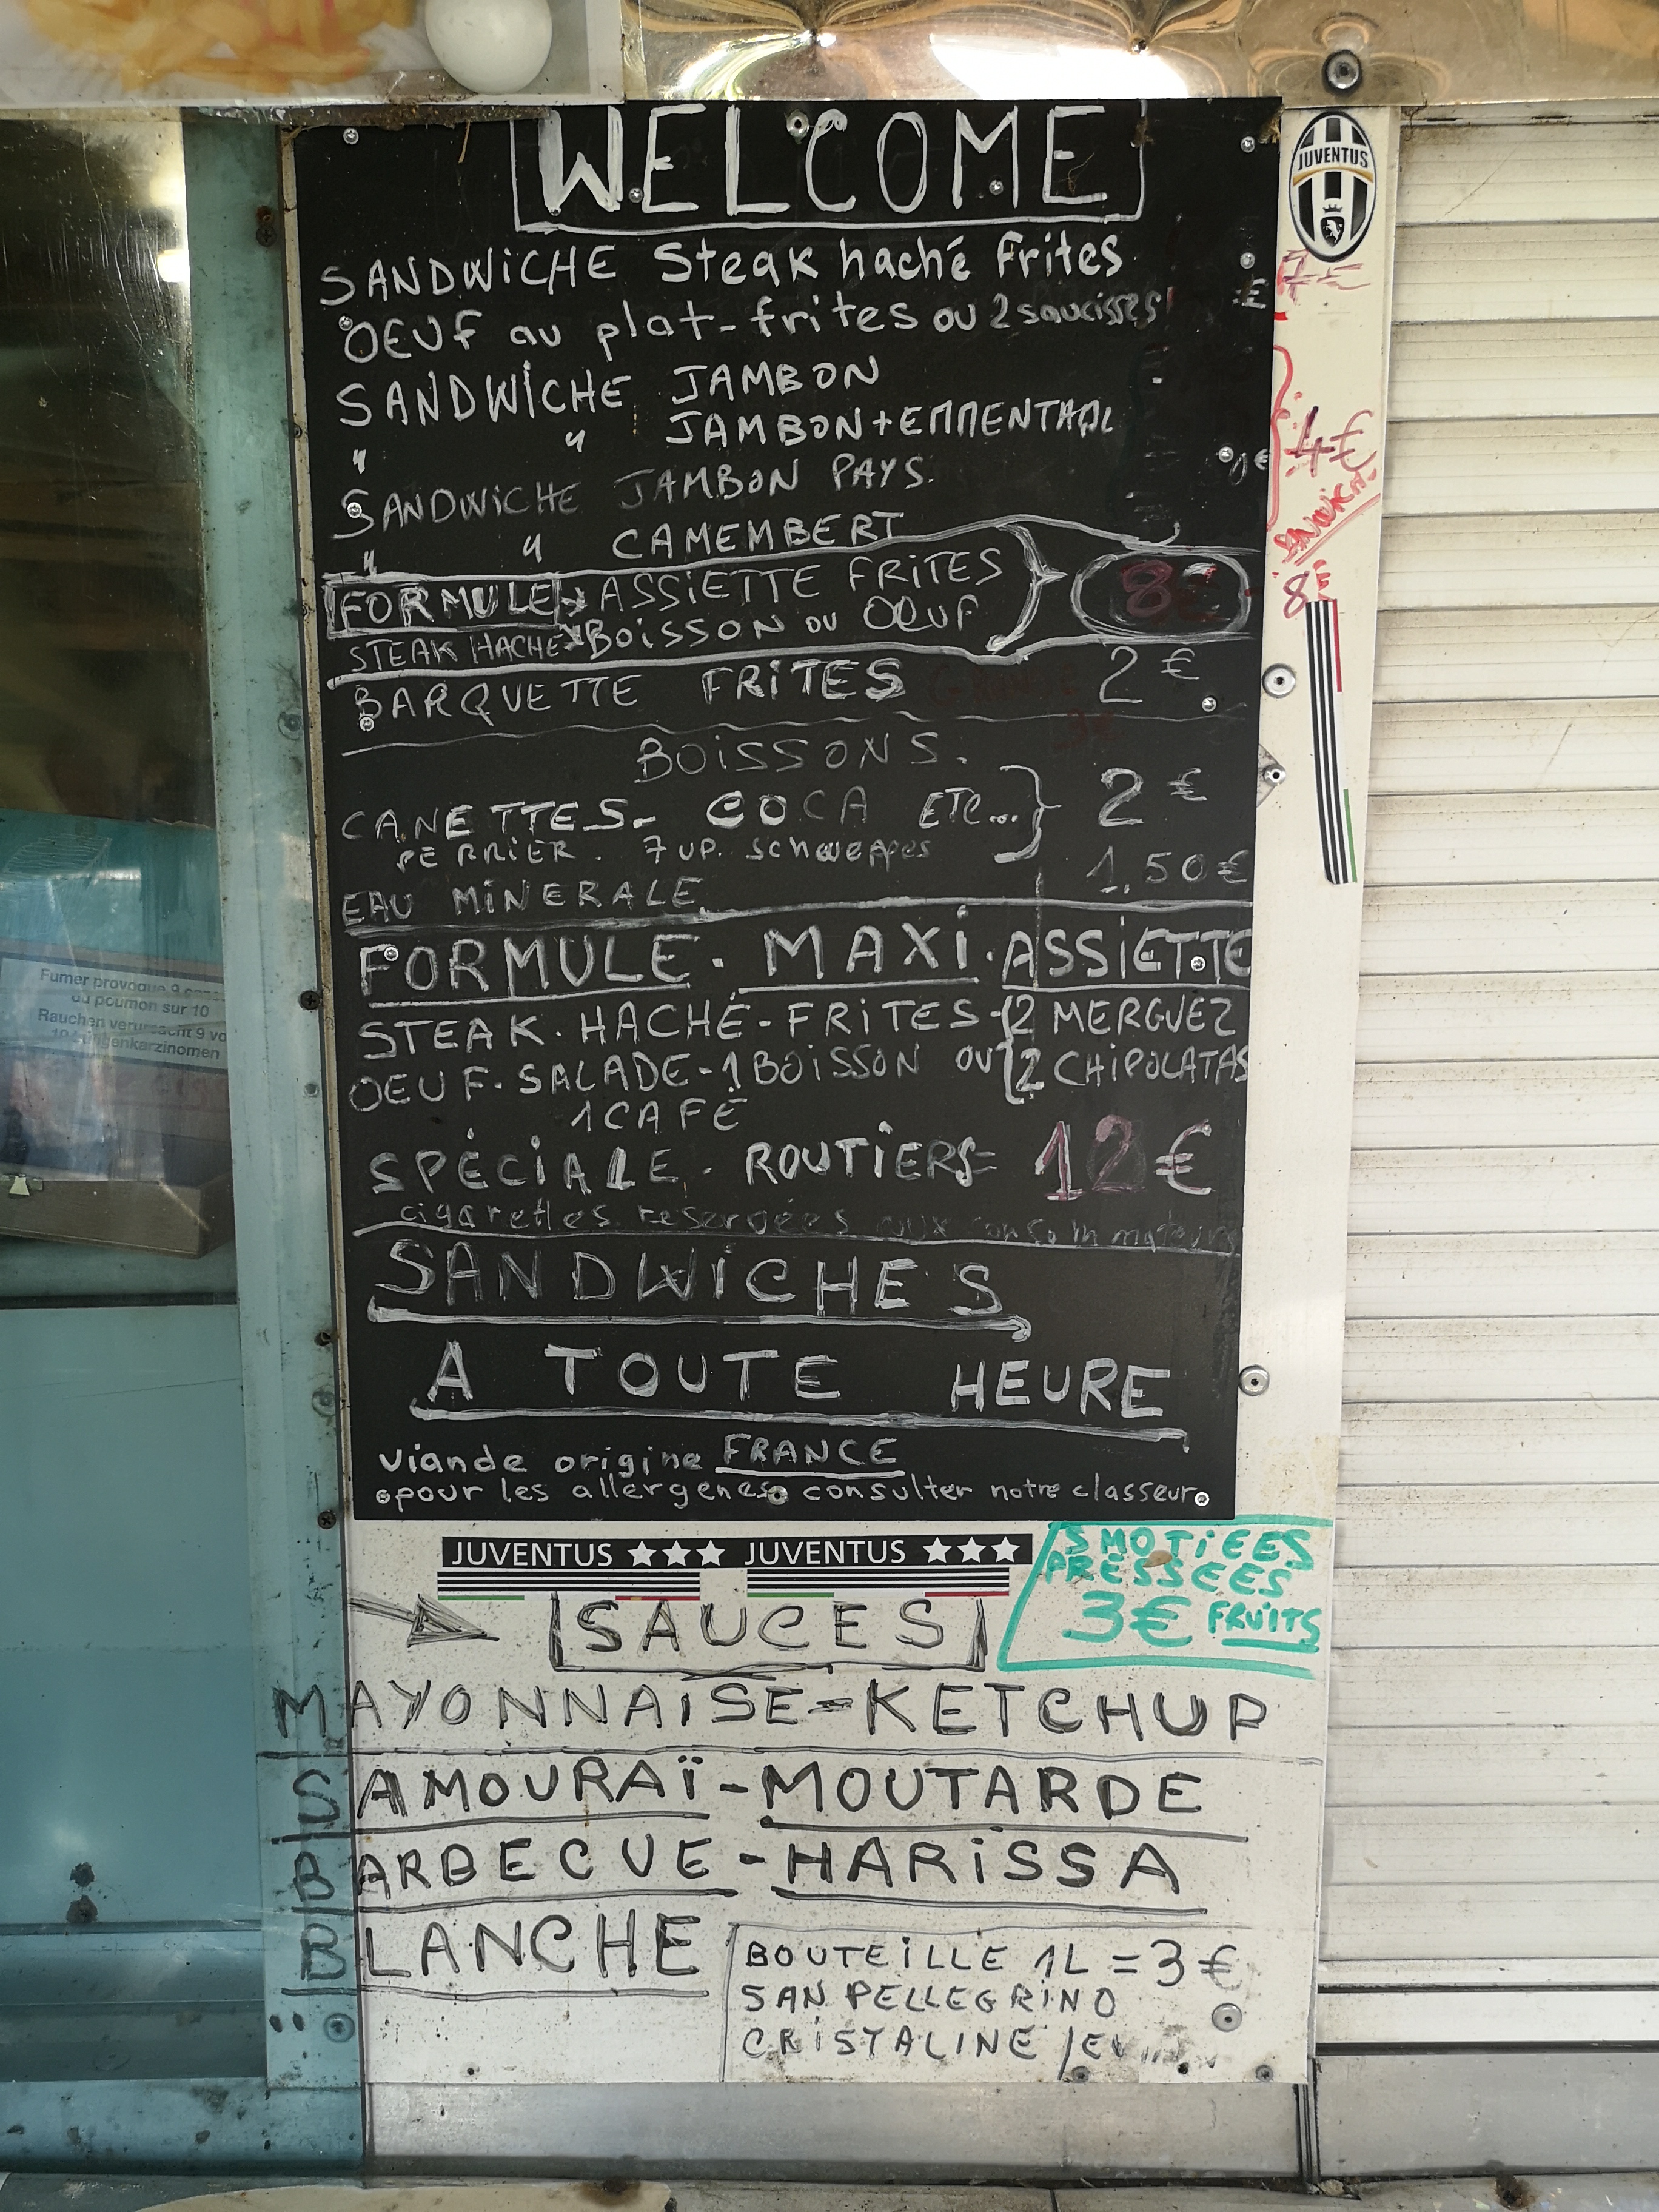 WELCOME
JUVENTUS
SANDWiCHE Steak haché frites
OEUF au plat-frites ou 2 saucisses
€
SANDWiCHE JAMBON
" " JAMBON+EMMENTHAL
4€
SANDWiCHE JAMBON PAYS.
€
" " CAMEMBERT
FORMULE ASSiETTE FRiTES
8€
8€
STEAK HACHE BOiSSON OU OEUF
BARQUETTE FRiTES 2€
GRANDE
3€
BOiSSONS.
CANETTES- COCA ETC... 2€
PERRiER. 7 UP. Schweppes
EAU MiNERALE 1,50€
FORMULE. MAXi. ASSiETTE
STEAK. HACHÉ-FRiTES-2 MERGUEZ
OEUF-SALADE-1 BOiSSON OU 2 CHiPOLATAS
1 CAFÉ
SPÉCiALE. ROUTiERS= 12€
cigarettes reservées aux consommateurs
SANDWiCHES
A TOUTE HEURE
viande origine FRANCE
pour les allergenes consulter notre classeur
Fumer provoque 9
du poumon sur 10
Rauchen verursacht 9 vo
JUVENTUS ★★★ JUVENTUS ★★★
SMOTiEES
PRESSEES
3€ FRUiTS
SAUCES
MAYONNAiSE-KETCHUP
SAMOURAÏ-MOUTARDE
BARBECUE-HARiSSA
BLANCHE
BOUTEiLLE 1L = 3€
SAN PELLEGRiNO
CRiSTALiNE